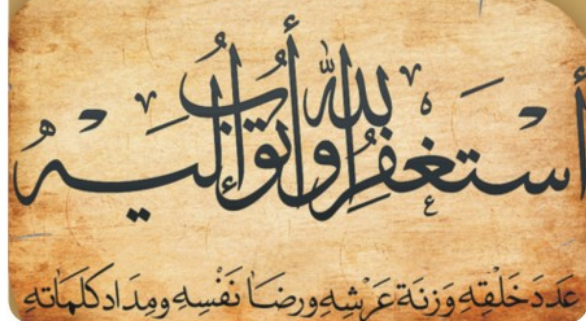 أستغفر الله وأتوب إليه
عَدَدَ خَلْقِهِ وَزِنَة عَرْشِهِ ورضَا نَفْسِه ومِدَاد كلمَاته